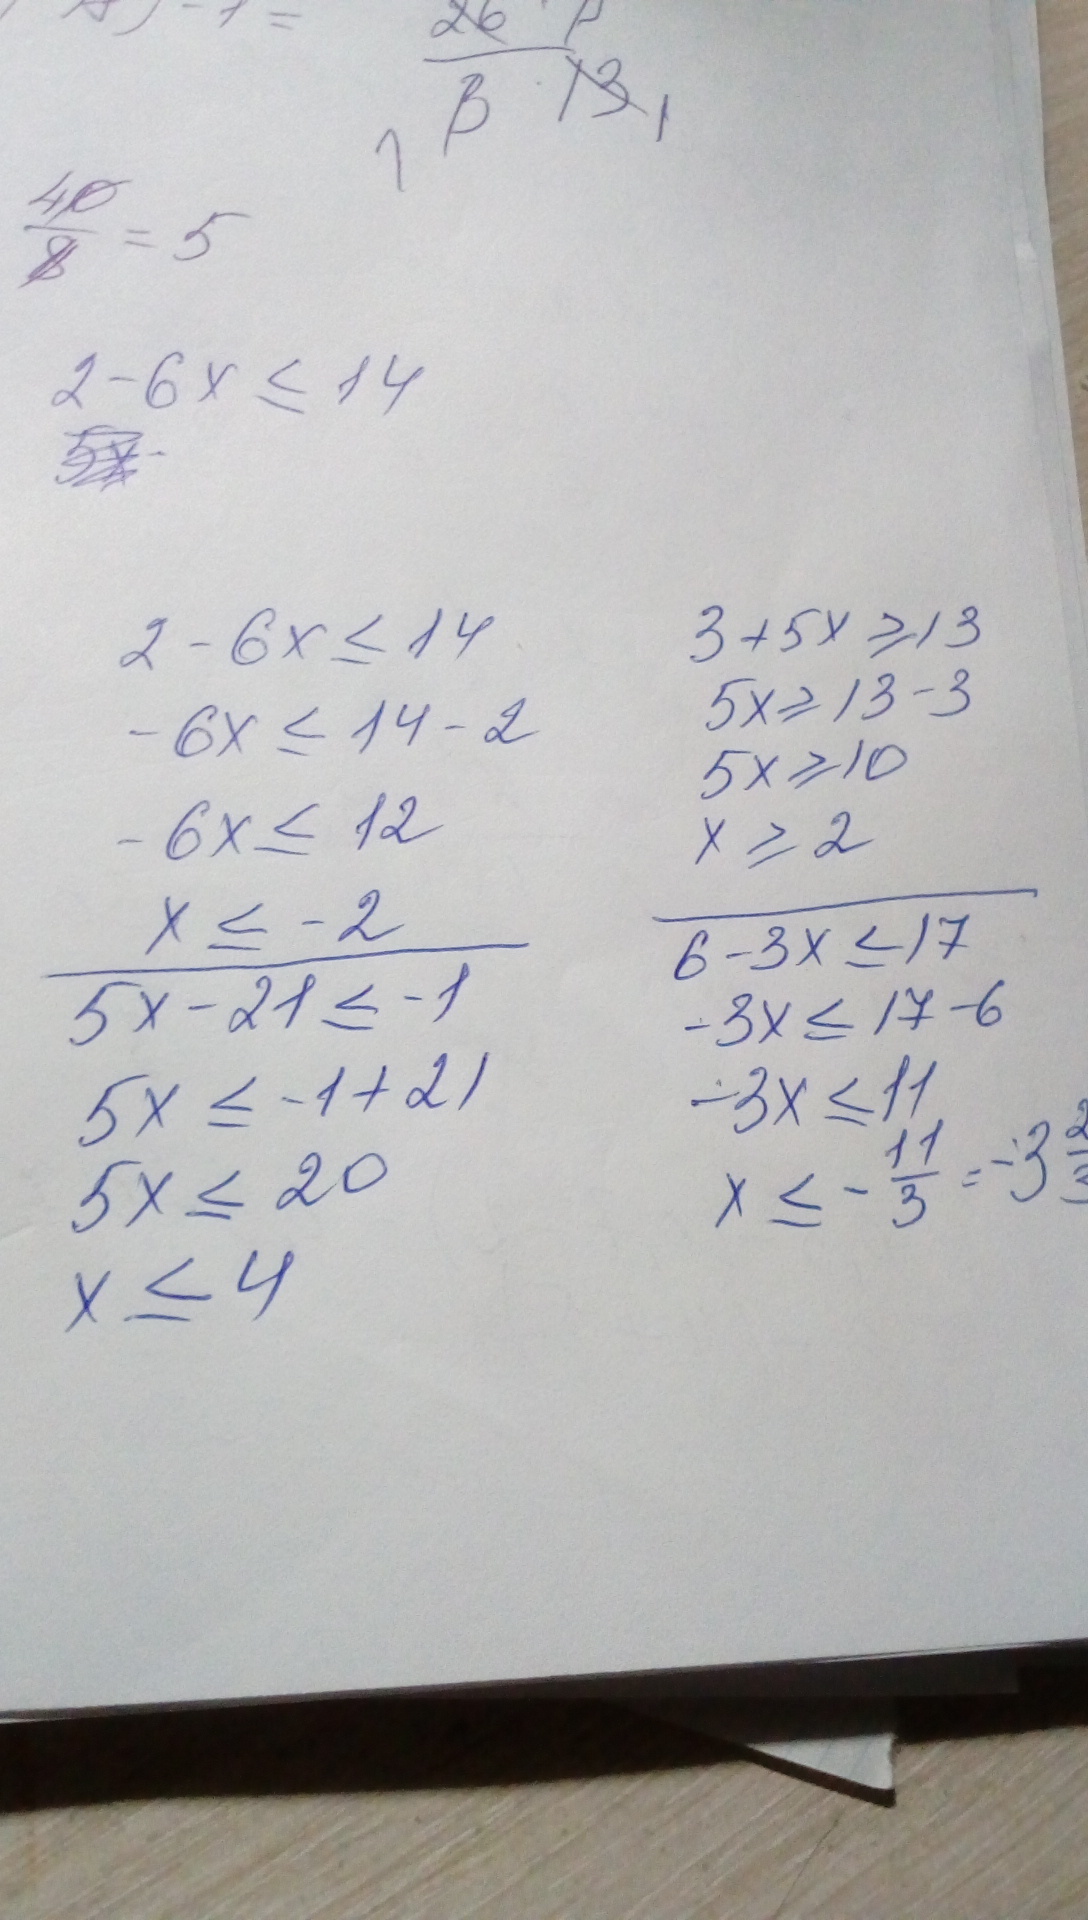 ) - 1 =
26
3 · 13 1
1
40/8 = 5
2 - 6x ≤ 14
2 - 6x ≤ 14
-6x ≤ 14 - 2
-6x ≤ 12
x ≤ -2
5x - 21 ≤ -1
5x ≤ -1 + 21
5x ≤ 20
x ≤ 4
3 + 5x ⩾ 13
5x ⩾ 13 - 3
5x ⩾ 10
x ⩾ 2
6 - 3x ≤ 17
-3x ≤ 17 - 6
-3x ≤ 11
x ≤ - 11/3 = -3 2/3